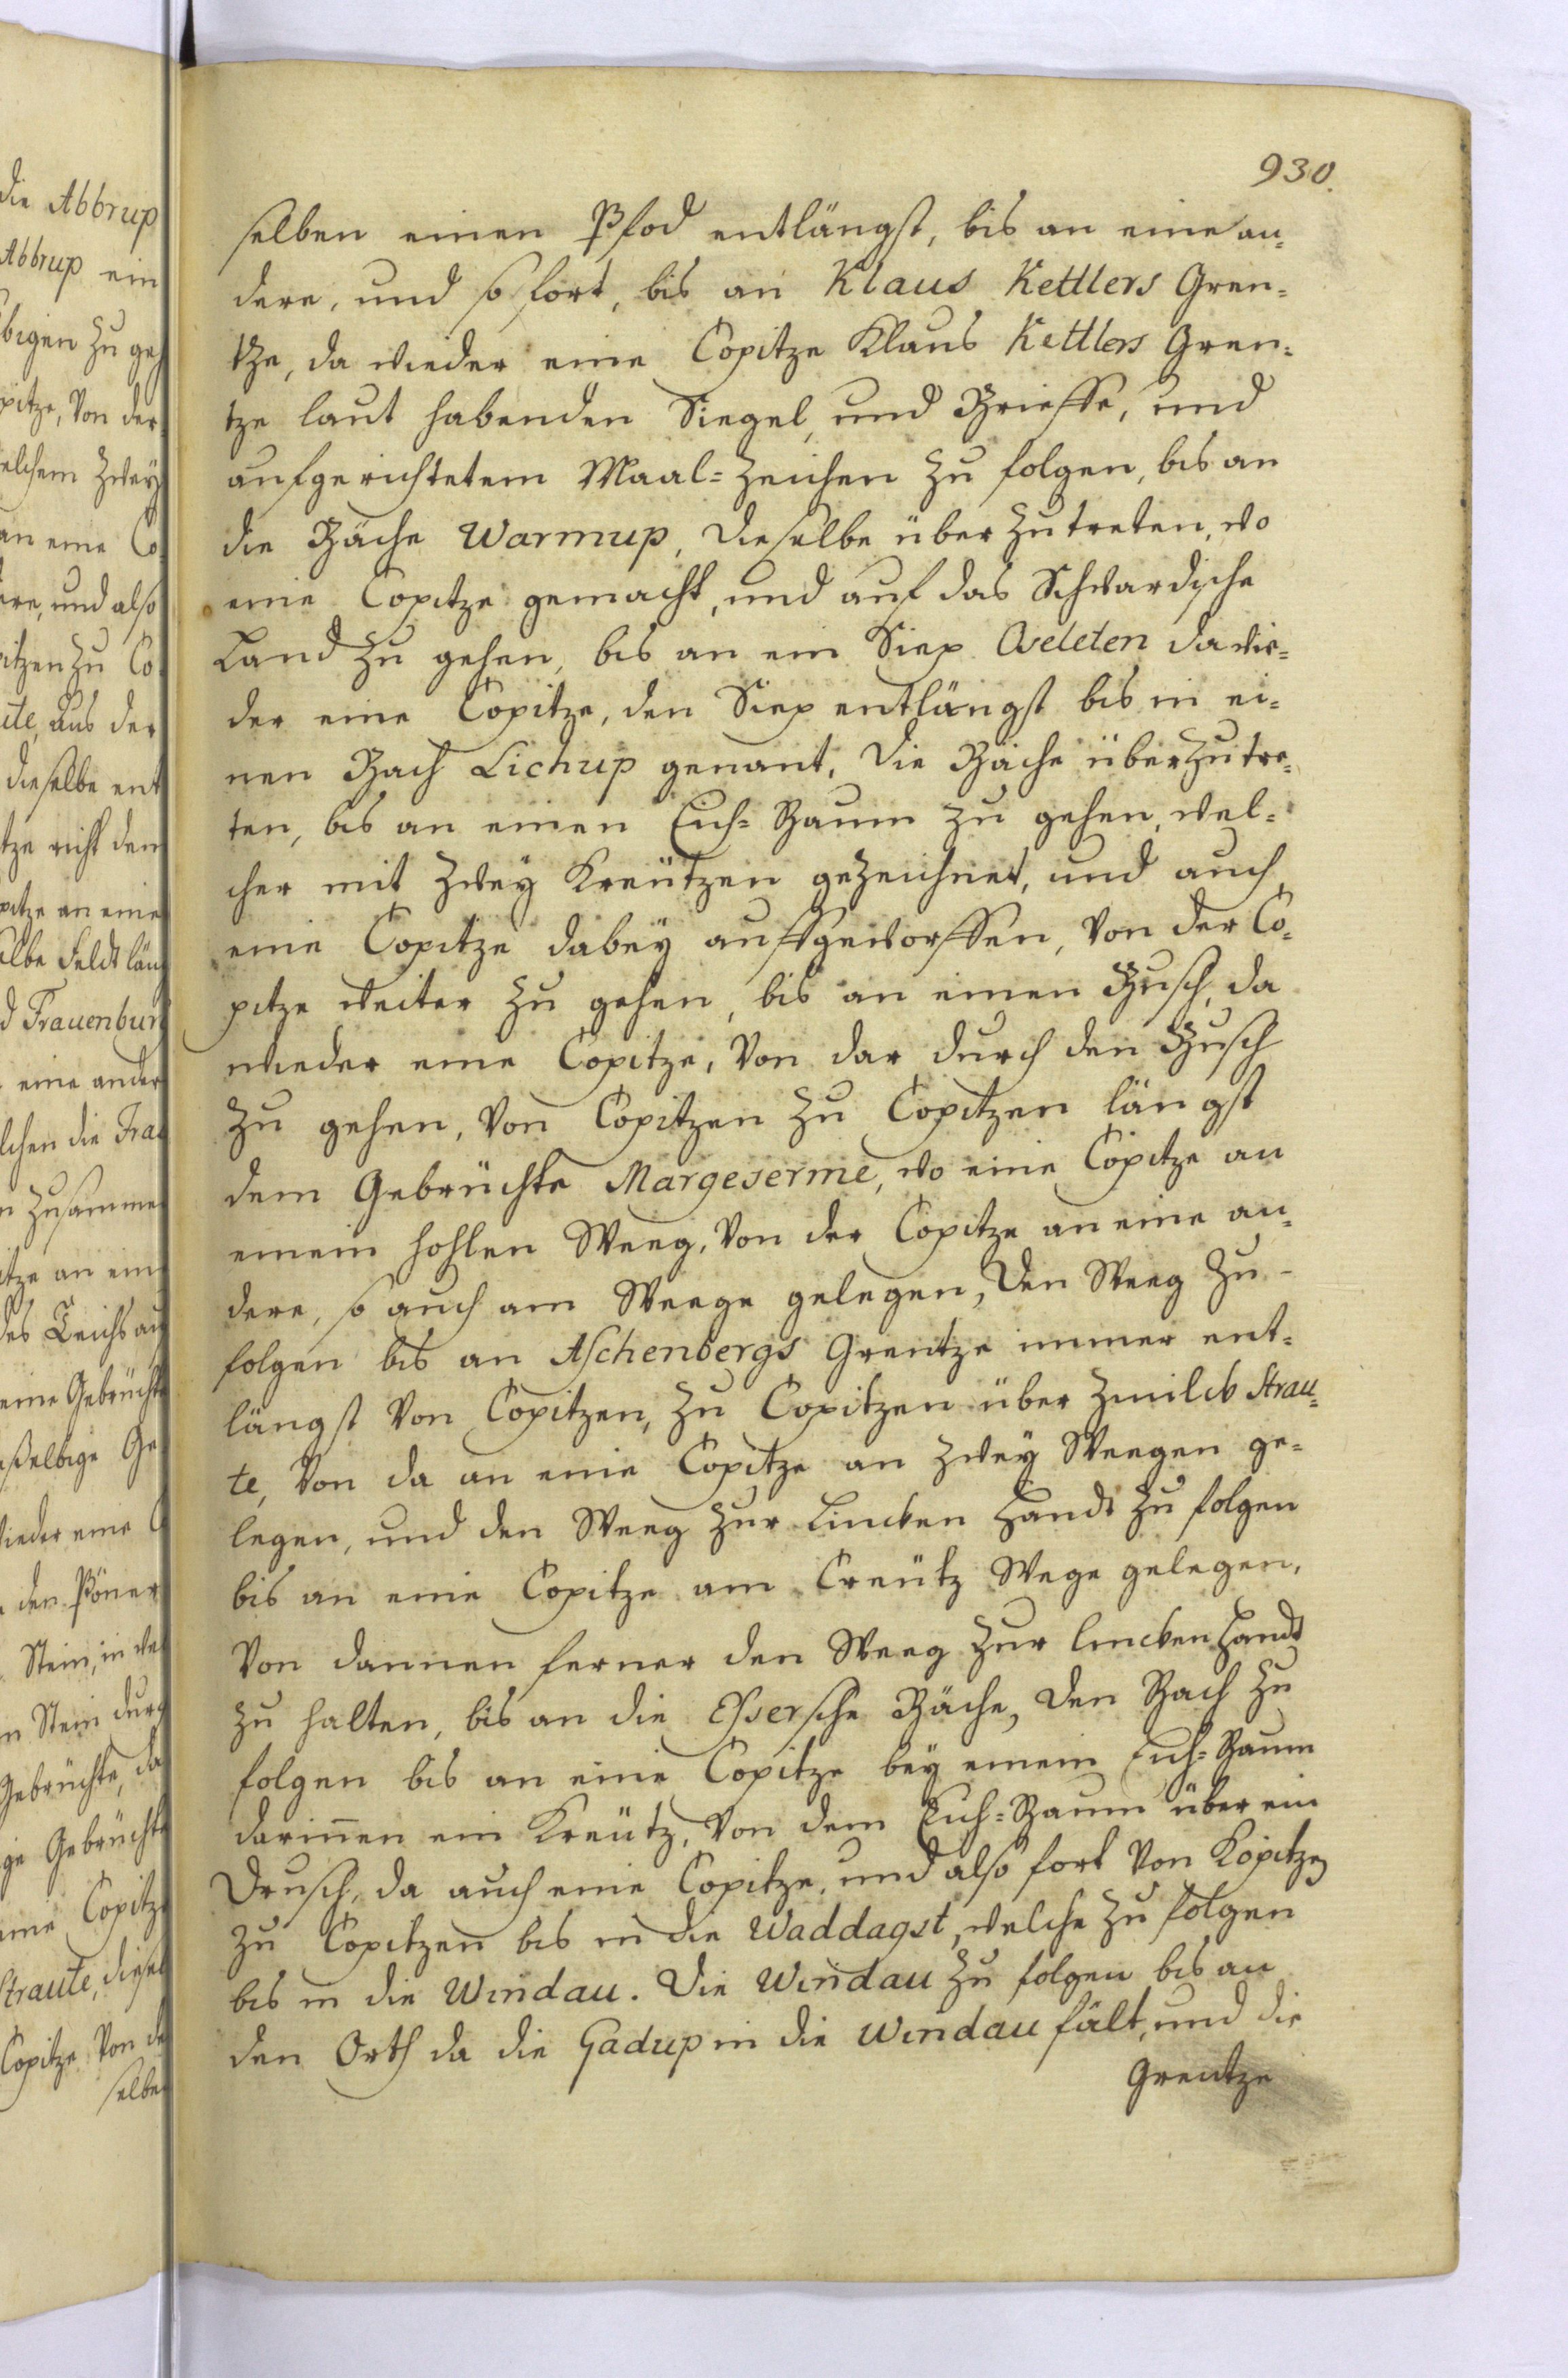 930.
selben einen Pfod entlängst, bis an eine an¬
dere, und so fort, bis an Klaus Kettlers Gren¬
tze, da wieder eine Copitze Klaus Kettlers Gren¬
tze laut habenden Siegel, und Brieffe, und
aufgerichtetem Maal=Zeichen zu folgen, bis an
die Bäche Warmup, dieselbe über zu treten, wo
eine Copitze gemacht, und auf das Schwardische
Land zu gehen, bis an ein Siep Oseleten da wie¬
der eine Copitze, den Siep entlängst bis in ei¬
nen Bach Lichup genant, die Bäche über zu tre¬
ten, bis an einen Eich=Baum zu gehen, wel¬
cher mit zwey Kreutzen gezeichnet, und auch
eine Copitze dabey auffgeworffen, von der Co¬
pitze weiter zu gehen, bis an einen Busch, da
wieder eine Copitze, von dar durch den Busch
zu gehen, von Copitzen zu Copitzen längst
dem Gebrüchte Margeserme, wo eine Copitze an
einem hohlen Weeg, von der Copitze an eine an¬
dere, so auch am Weege gelegen, den Weeg zu-
folgen bis an Aschenbergs Grentze immer ent¬
längst von Copitzen, zu Copitzen über Zwilck Strau¬
te, von da an eine Copitze an zwey Weegen ge¬
legen, und den Weeg zur Lincken Handt zu folgen
bis an eine Copitze am Creutz Wege gelegen,
von dannen ferner den Weeg zur lincken Handt
zu halten, bis an die Essersche Bäche, den Bach zu
folgen bis an eine Copitze bey einem Eich=Baum
darinnen ein Kreutz, von dem Eich=Baum über ein
Drusch, da auch eine Copitze, und also fort von Kopitzen
zu Copitzen bis in die Waddagst, welche zu folgen
bis in die Windau. Die Windau zu folgen bis an
den Orth da die Gadup in die Windau fält, und die
Grentze
die Abbrup
Abbrup ein
bigen zu geh
pitze, von der
elchem zwey
an eine Co
ere, und also
itzen zu Co
ute, aus der
dieselbe ent
tze richt dem
pitze an eine
albe Feldt län
d Frauenbur
eine ander
lchen die Frau
n zusamme
itze an ein
des Teichs au
eine Gebrücht
aßelbige Ge
wieder eine C
den Pöner
Stein, in we
n Stein durch
Gebrüchte, da
ge Gebrücht
eine Copitz
Straute, diesel
Copitze von de
selbe